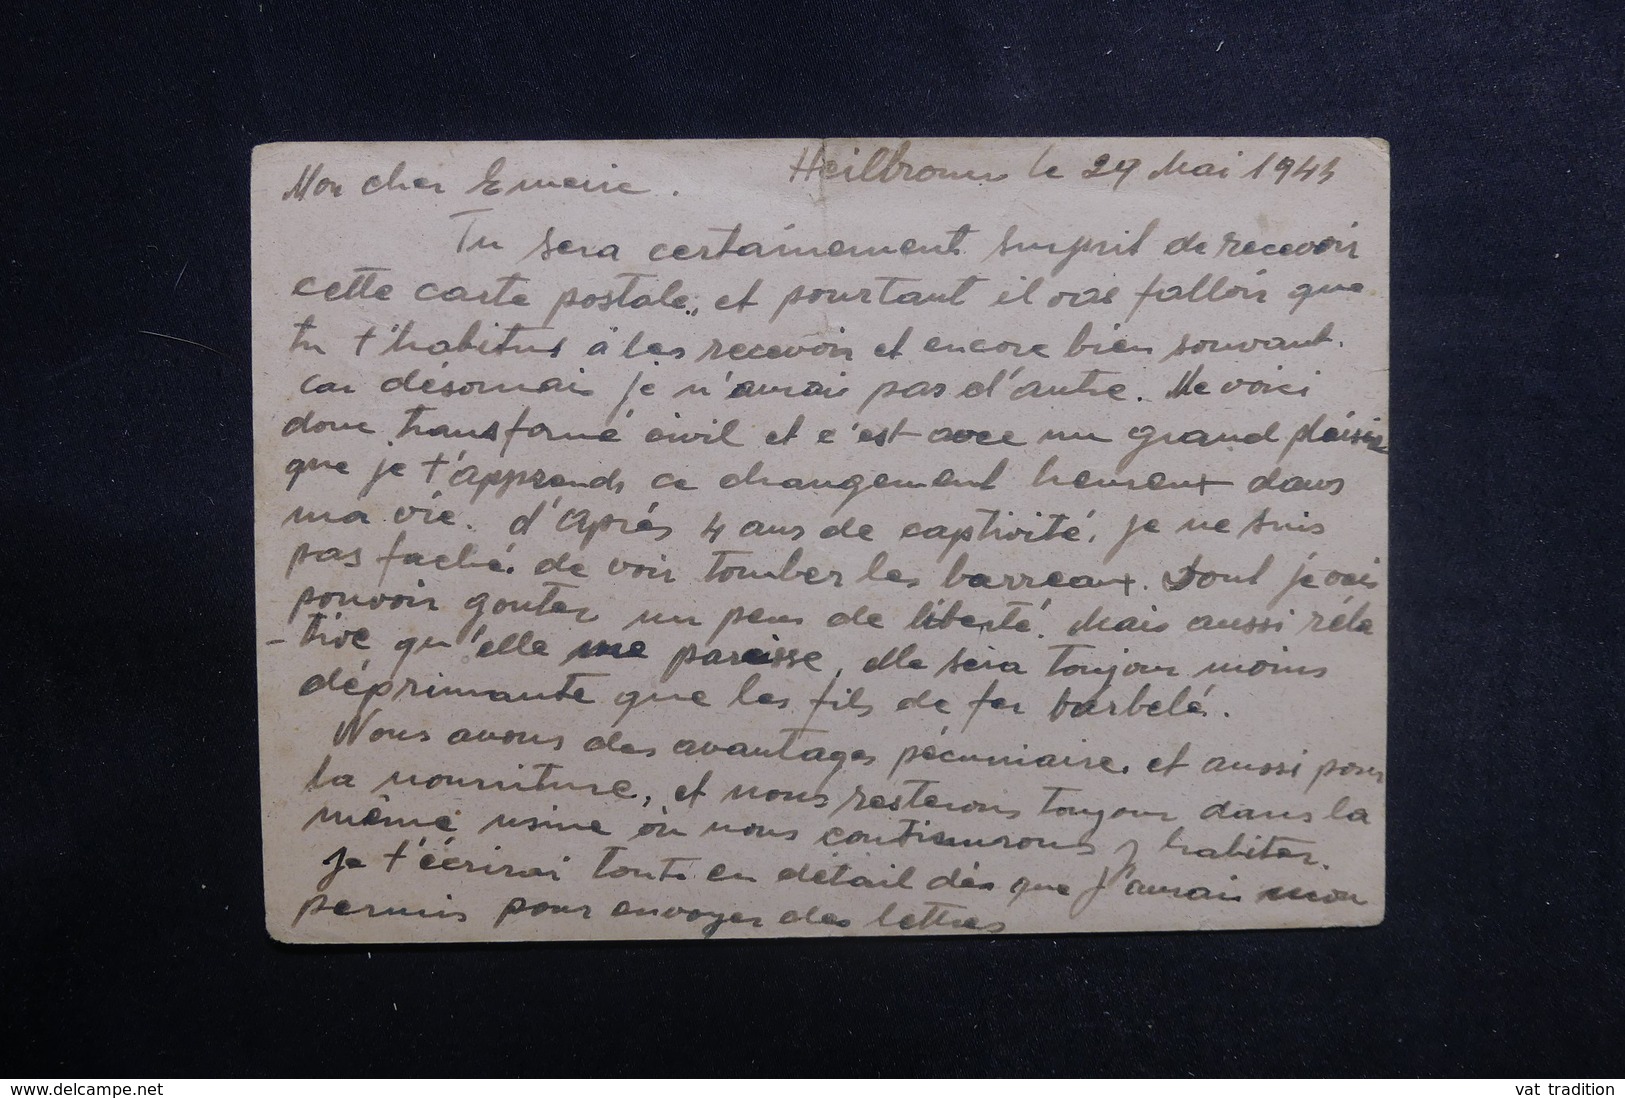 Heilbronn le 29 Mai 1944
Mon cher Emeric.
Tu sera certainement surpris de recevoir
cette carte postale, et pourtant il vas falloir que
tu t'habitus à les recevoir et encore bien souvant.
Car désormais je n'aurais pas d'autre. Me voici
donc transformé civil et c'est avec un grand plaisir
que je t'apprends ce changement heureux dans
ma vie. d'Après 4 ans de captivité, je ne suis
pas faché de voir tomber les barreaux. Dont je vais
pouvoir gouter un peu de liberté. Mais aussi réla
-tive qu'elle me paraisse, elle sera toujour moins
déprimante que les fils de fer barbelé.
Nous avons des avantages pécuniaire et aussi pour
la nourriture, et nous resterons toujour dans la
même usine où nous continurons y habiter.
Je t'écrirai tout en détail dès que j'aurai mon
permis pour envoyer des lettres
www.delcampe.net
vat_tradition